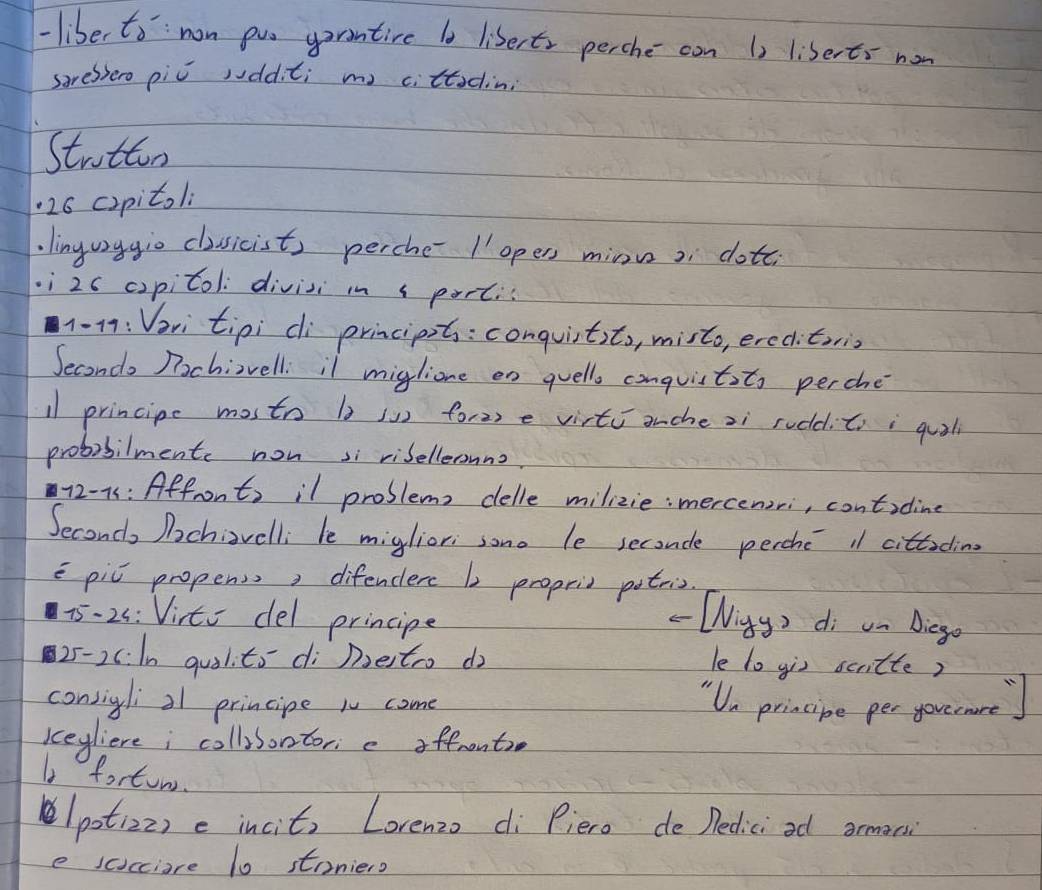 -libertà: non può garantire la libertà perché con la libertà non
sarebbero più sudditi ma cittadini
Struttura
•26 capitoli
•linguaggio classicista perché l'opera mirava ai dotti
•i 26 capitoli divisi in 4 parti:
1-11: Vari tipi di principato: conquistato, misto, ereditario
Secondo Machiavelli il migliore era quello conquistato perché
il principe mostra la sua forza e virtù anche ai sudditi i quali
probabilmente non si ribelleranno.
12-14: Affronta il problema delle milizie: mercenari, contadine
Secondo Machiavelli le migliori sono le seconde perché il cittadino
è più propenso a difendere la propria patria.
15-24: Virtù del principe
25-26: In qualità di Maestro da
consigli al principe su come
scegliere i collaboratori e affrontare
la fortuna.
Ipotizza e incita Lorenzo di Piero de Medici ad armarsi
e scacciare lo straniero
← [Nigga di un Diego
le ho già scritte a
"Un principe per governare"]